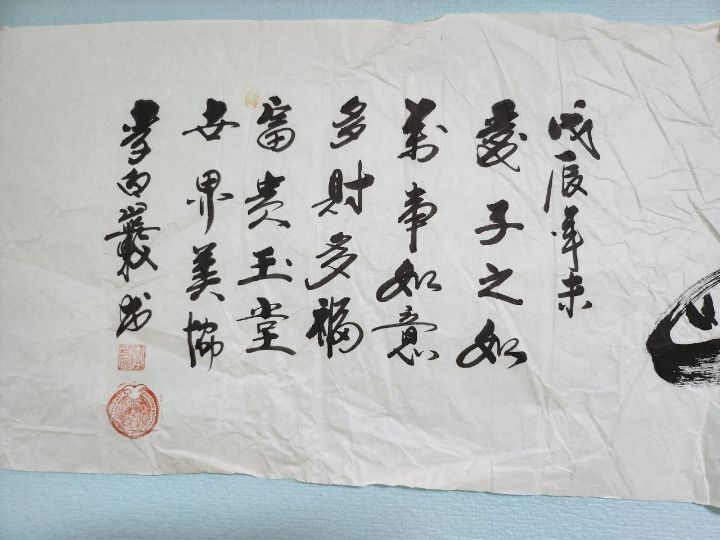 戊辰年末
愛子之如
萬事如意
多財多福
富貴玉堂
世界美協
李白巖书